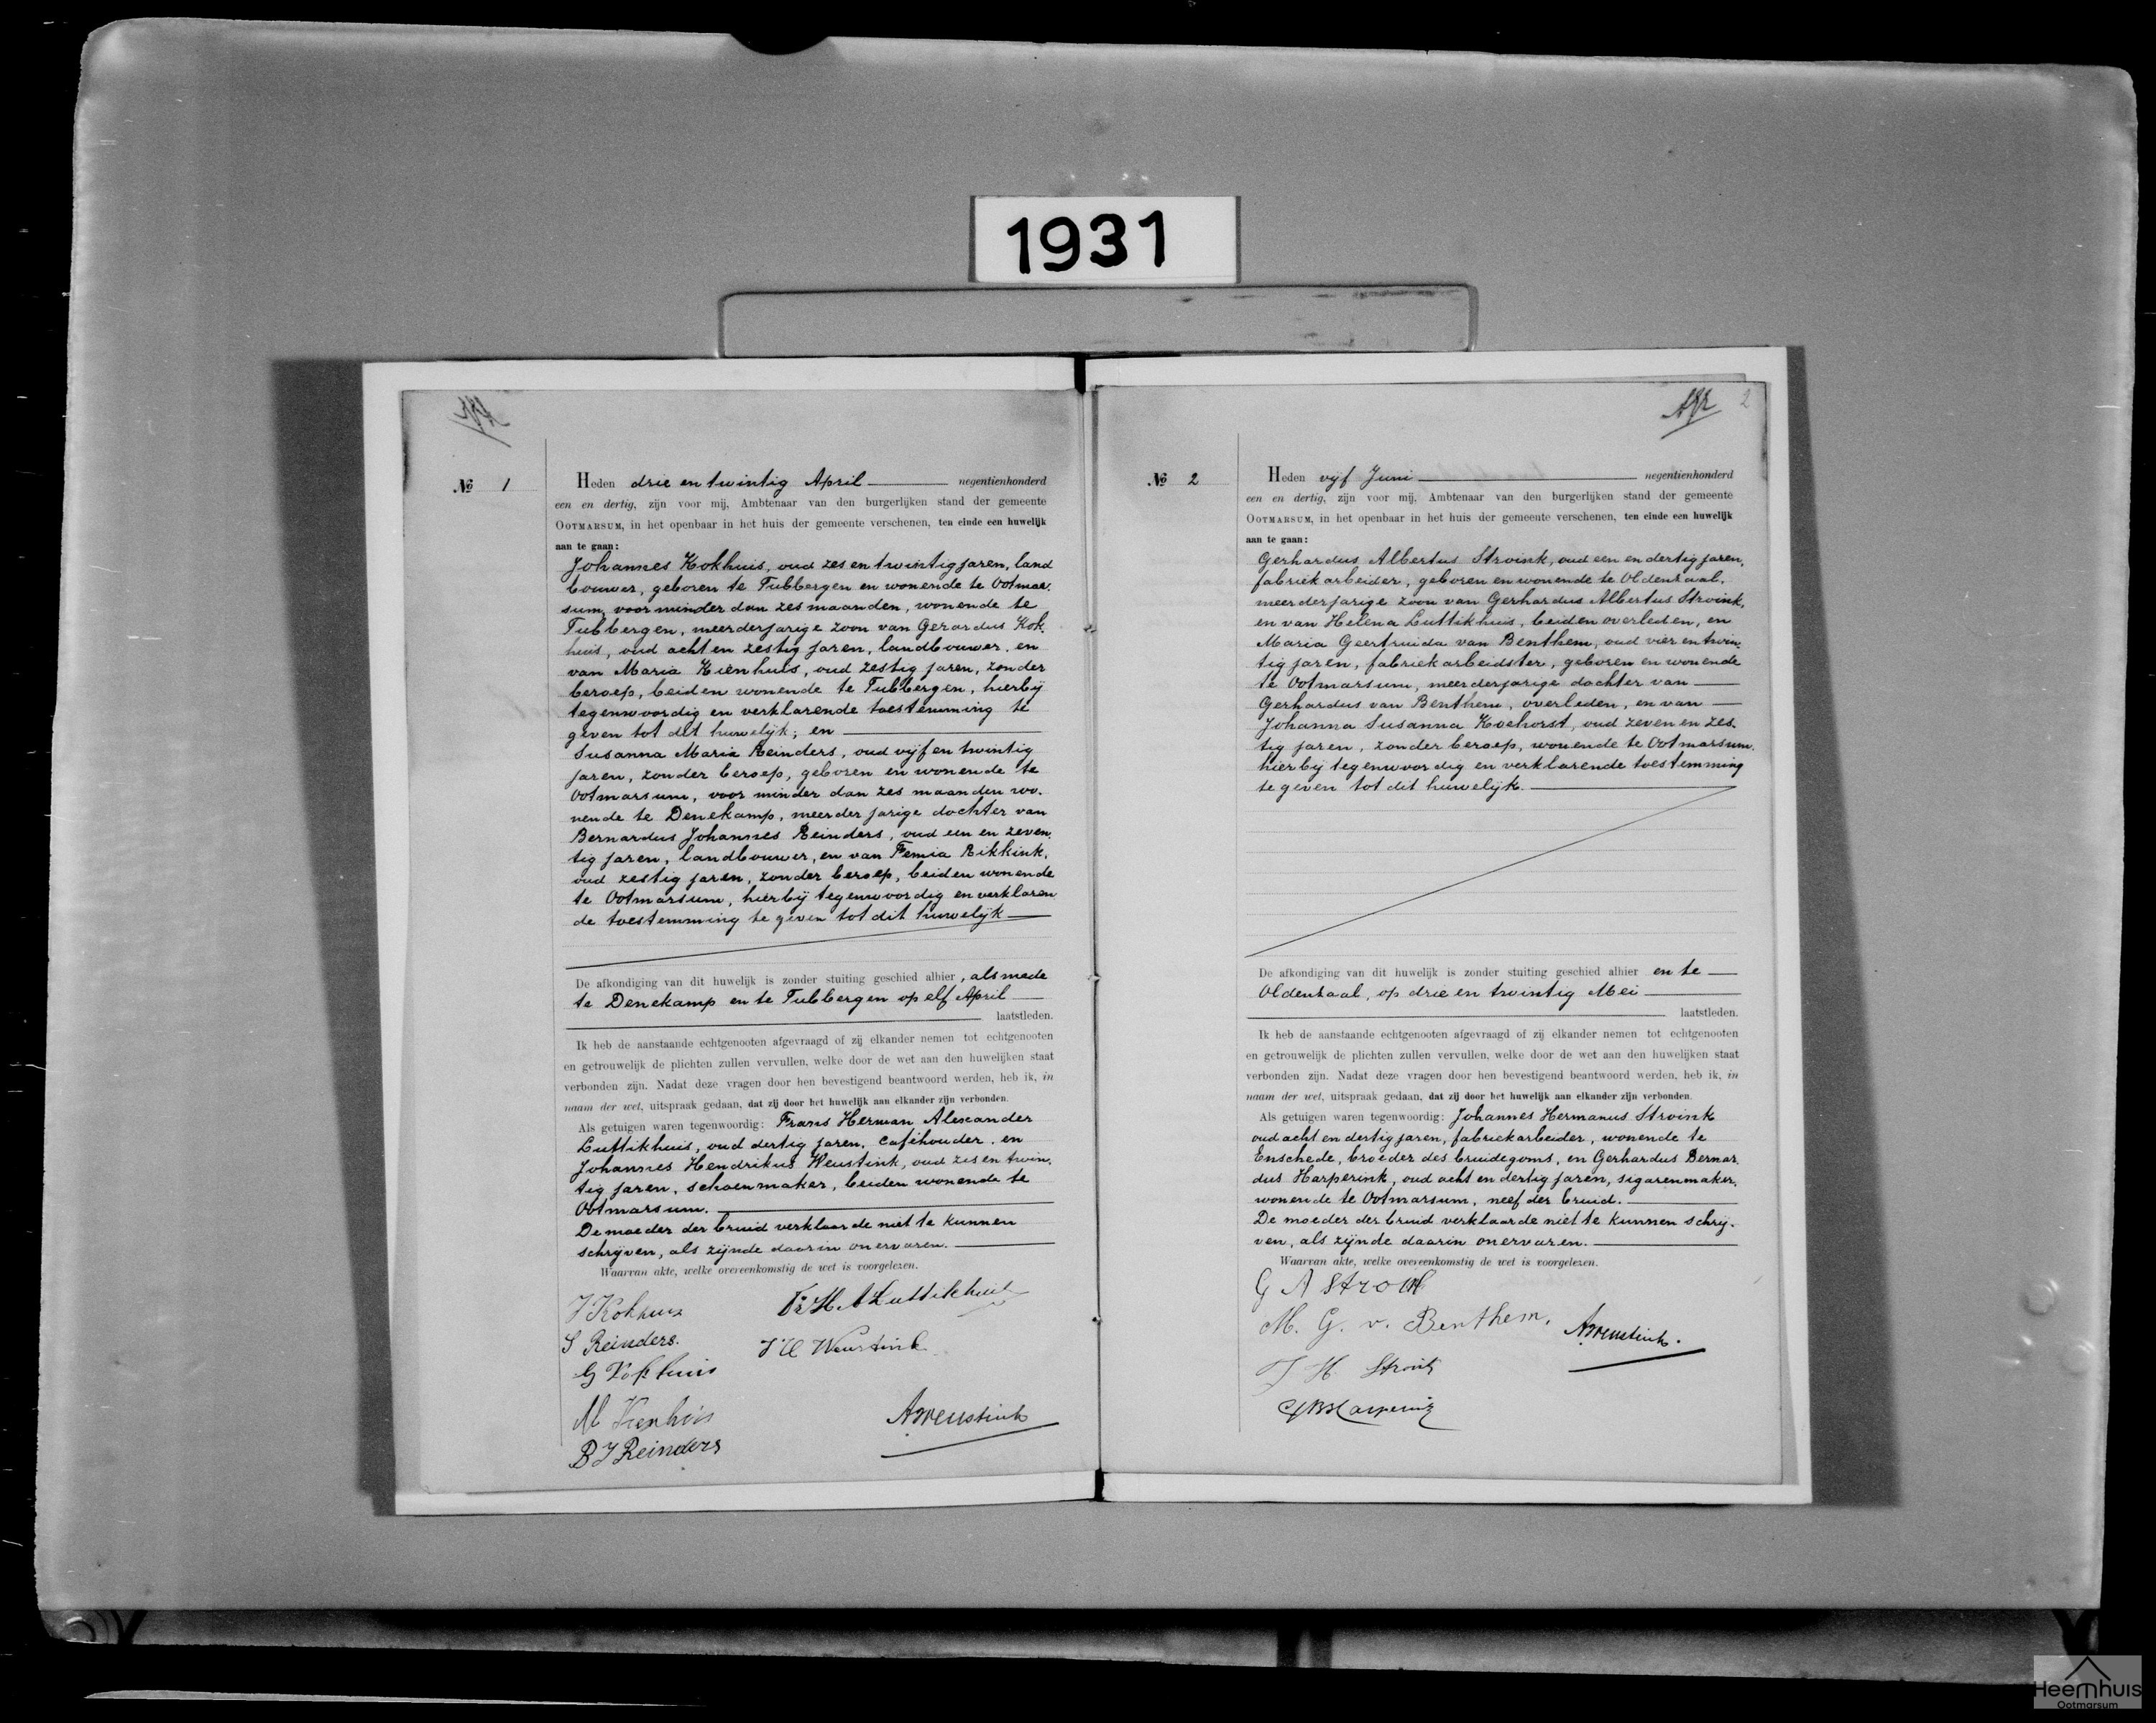 1931
№ 1
Heden drie en twintig April negentienhonderd
een en dertig, zijn voor mij, Ambtenaar van den burgerlijken stand der gemeente
OOTMARSUM, in het openbaar in het huis der gemeente verschenen, ten einde een huwelijk
aan te gaan:
Johannes Kokhuis, oud zes en twintig jaren, land
bouwer, geboren te Tubbergen en wonende te Ootmar.
sum, voor minder dan zes maanden, wonende te
Tubbergen, meerderjarige zoon van Gerardus Kok.
huis, oud acht en zestig jaren, landbouwer, en
van Maria Kienhuis, oud zestig jaren, zonder
beroep, beiden wonende te Tubbergen, hierbij
tegenwoordig en verklarende toestemming te
geven tot dit huwelijk; en
Susanna Maria Reinders, oud vijf en twintig
jaren, zonder beroep, geboren en wonende te
Ootmarsum, voor minder dan zes maanden wo.
nende te Denekamp, meerderjarige dochter van
Bernardus Johannes Reinders, oud een en zeven.
tig jaren, landbouwer, en van Femia Rikkink,
oud zestig jaren, zonder beroep, beiden wonende
te Ootmarsum, hierbij tegenwoordig en verklaren
de toestemming te geven tot dit huwelijk
De afkondiging van dit huwelijk is zonder stuiting geschied alhier, alsmede
te Denekamp en te Tubbergen op elf April
laatstleden.
Ik heb de aanstaande echtgenooten afgevraagd of zij elkander nemen tot echtgenooten
en getrouwelijk de plichten zullen vervullen, welke door de wet aan den huwelijken staat
verbonden zijn. Nadat deze vragen door hen bevestigend beantwoord werden, heb ik, in
naam der wet, uitspraak gedaan, dat zij door het huwelijk aan elkander zijn verbonden.
Als getuigen waren tegenwoordig: Frans Herman Alexander
Luttikhuis, oud dertig jaren, caféhouder, en
Johannes Hendrikus Weustink, oud zes en twin.
tig jaren, schoenmaker, beiden wonende te
Ootmarsum.
De moeder der bruid verklaarde niet te kunnen
schrijven, als zijnde daarin onervaren.
Waarvan akte, welke overeenkomstig de wet is voorgelezen.
J Kokhuis Fr H A Luttikhuis
S Reinders. J H Weustink
G Kokhuis
M Kienhuis
B J Reinders
2
№ 2
Heden vijf Juni negentienhonderd
een en dertig, zijn voor mij, Ambtenaar van den burgerlijken stand der gemeente
OOTMARSUM, in het openbaar in het huis der gemeente verschenen, ten einde een huwelijk
aan te gaan:
Gerhardus Albertus Stroink, oud een en dertig jaren,
fabriekarbeider, geboren en wonende te Oldenzaal,
meerderjarige zoon van Gerhardus Albertus Stroink,
en van Helena Luttikhuis, beiden overleden, en
Maria Geertruida van Benthem, oud vier en twin.
tig jaren, fabriekarbeidster, geboren en wonende
te Ootmarsum, meerderjarige dochter van
Gerhardus van Benthem, overleden, en van
Johanna Susanna Koehorst, oud zeven en zes.
tig jaren, zonder beroep, wonende te Ootmarsum.
hierbij tegenwoordig en verklarende toestemming
te geven tot dit huwelijk.
De afkondiging van dit huwelijk is zonder stuiting geschied alhier en te
Oldenzaal, op drie en twintig Mei
laatstleden.
Ik heb de aanstaande echtgenooten afgevraagd of zij elkander nemen tot echtgenooten
en getrouwelijk de plichten zullen vervullen, welke door de wet aan den huwelijken staat
verbonden zijn. Nadat deze vragen door hen bevestigend beantwoord werden, heb ik, in
naam der wet, uitspraak gedaan, dat zij door het huwelijk aan elkander zijn verbonden.
Als getuigen waren tegenwoordig: Johannes Hermanus Stroink
oud acht en dertig jaren, fabriekarbeider, wonende te
Enschede, broeder des bruidegoms, en Gerhardus Bernar.
dus Harperink, oud acht en dertig jaren, sigarenmaker,
wonende te Ootmarsum, neef der bruid.
De moeder der bruid verklaarde niet te kunnen schrij.
ven, als zijnde daarin onervaren.
Waarvan akte, welke overeenkomstig de wet is voorgelezen.
G A Stroink
M. G. v. Benthem.
J H Stroink
G B Harperink
Heemhuis
Ootmarsum